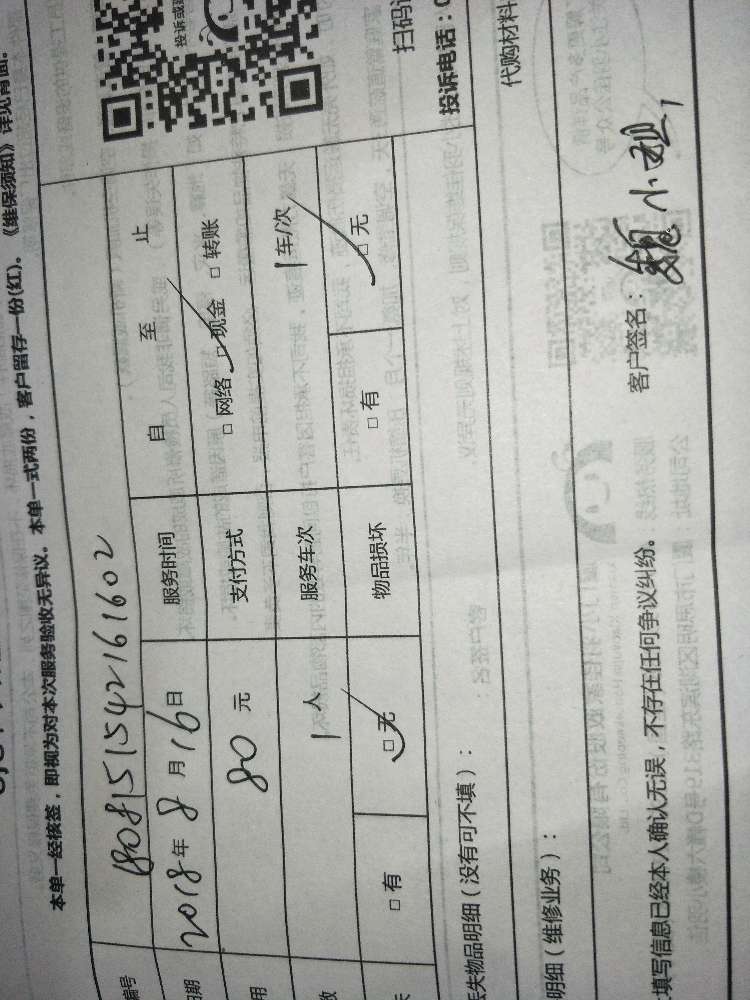 本单一经核签，即视为对本次服务验收无异议。本单一式两份，客户留存一份(红)。《维保须知》详见背面。
编号 1808151542161602
日期 2018年8月16日 服务时间 自 至 止
用 80元 支付方式 □网络 □现金 □转账
数 1人 服务车次 1车/次
□有 □无 物品损坏 □有 □无
丢失物品明细（没有可不填）：
明细（维修业务）：
代购材料
填写信息已经本人确认无误，不存在任何争议纠纷。 客户签名：
投诉电话：0
扫码
投诉或